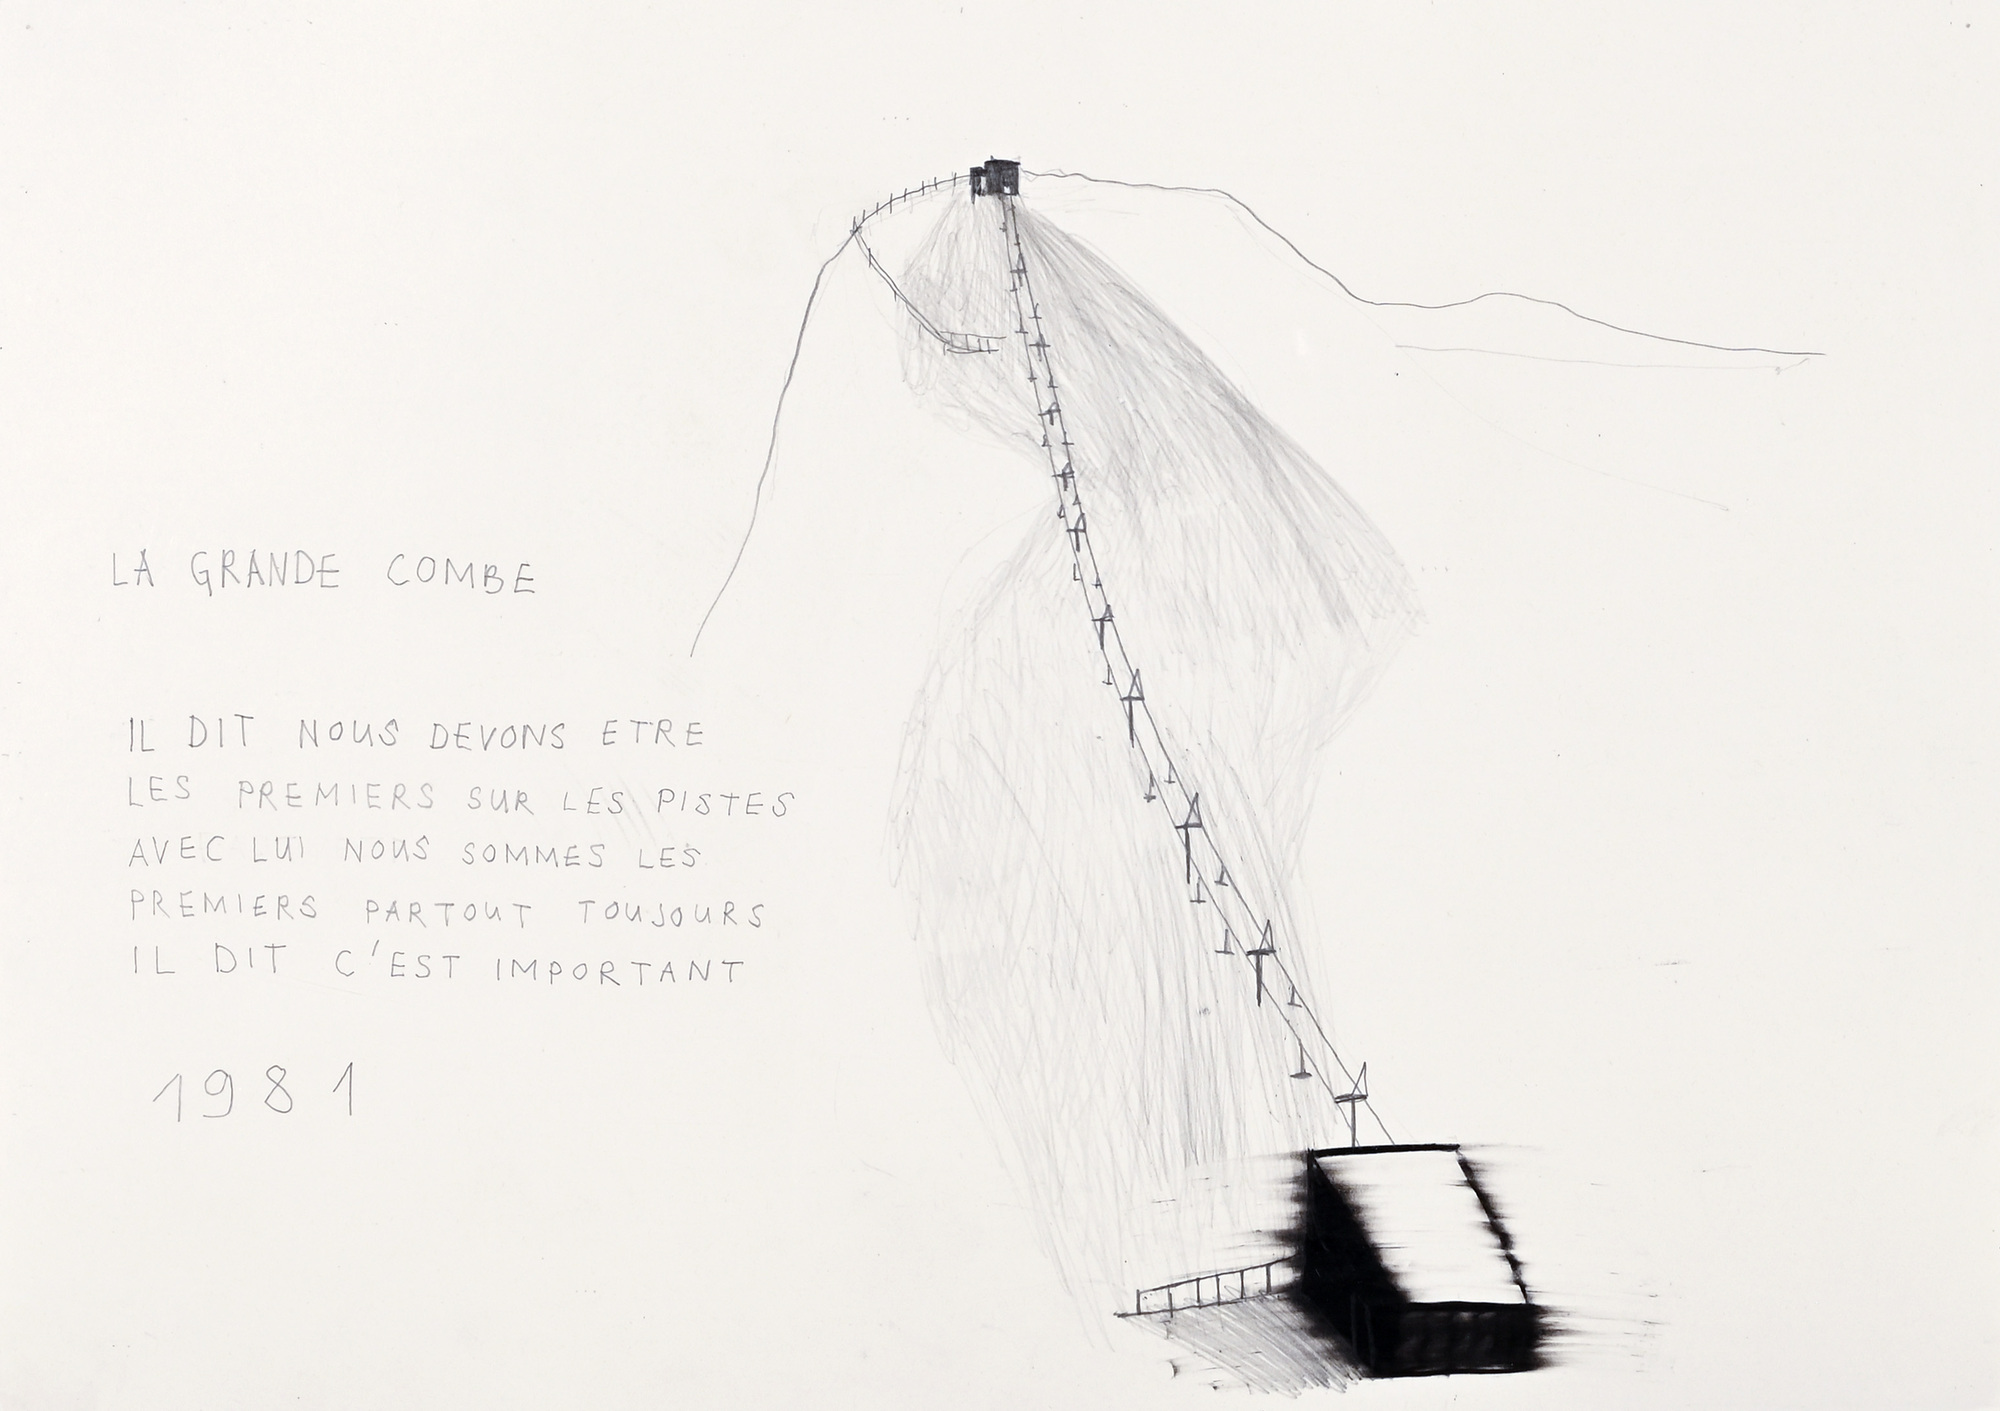 LA GRANDE COMBE
IL DIT NOUS DEVONS ETRE
LES PREMIERS SUR LES PISTES
AVEC LUI NOUS SOMMES LES
PREMIERS PARTOUT TOUJOURS
IL DIT C'EST IMPORTANT
1981